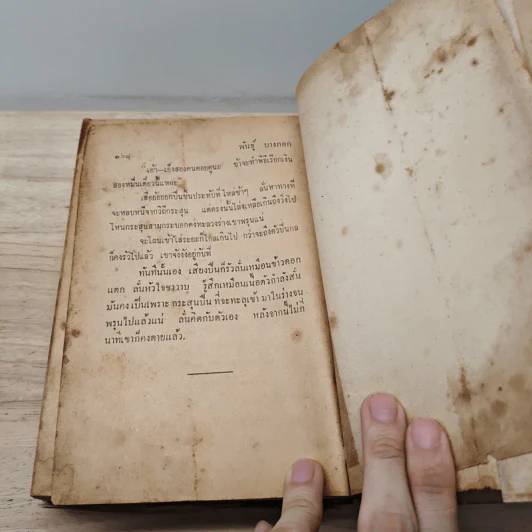 ๒๖๘ พันธุ์ บางกอก
"เฮ้า—แย็งสองคนคอยดูนะ ข้าจะทำพิธีเรียกเงิน
สองหมื่นเดี๋ยวนี้แหละ"
เสือย้อยยกปืนขึ้นประทับที่ไหล่ช้าๆ ลั่นหาทางที่
จะหลบหนีจากวิถีกระสุน แต่ตรงนั้นโล่งเหลือเกินถึงวิ่งไป
ไหนกระสุนสามกระบอกคงทะลวงร่างเขาพรุนแน่
จะโดนเข้าใส่ระยะก็ไกลเกินไป กว่าจะถึงตัวปืนกล
ก็คงรัวไปแล้ว เขาจังงังอยู่กับที่
ทันทีนั้นเอง เสียงปืนก็รัวลั่นเหมือนข้าวตอก
แตก ลั่นหัวใจซาวาบ รู้สึกเหมือนเนื้อตัวกำลังสั่น
มันคงเป็นเพราะกระสุนปืน ที่จะทะลุเข้ามาในร่างจน
พรุนไปแล้วแน่ ลั่นคิดกับตัวเอง หลังจากนี้ไม่กี่
นาทีเขาก็คงตายแล้ว.